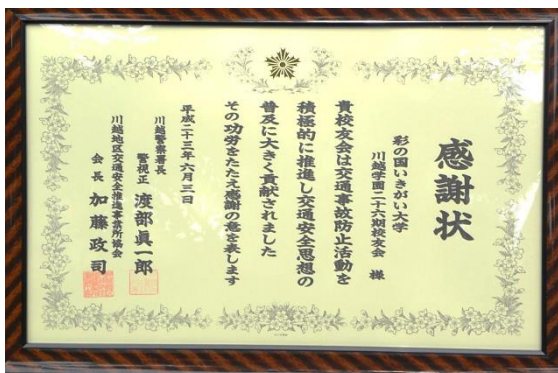 感謝状
彩の国いきがい大学
川越学園二十六期校友会 様
貴校友会は交通事故防止活動を
積極的に推進し交通安全思想の
普及に大きく貢献されました
その功労をたたえ感謝の意を表します
平成二十三年六月三日
川越警察署長
警視正 渡部眞一郎
川越地区交通安全推進事業所協会
会長 加藤政司